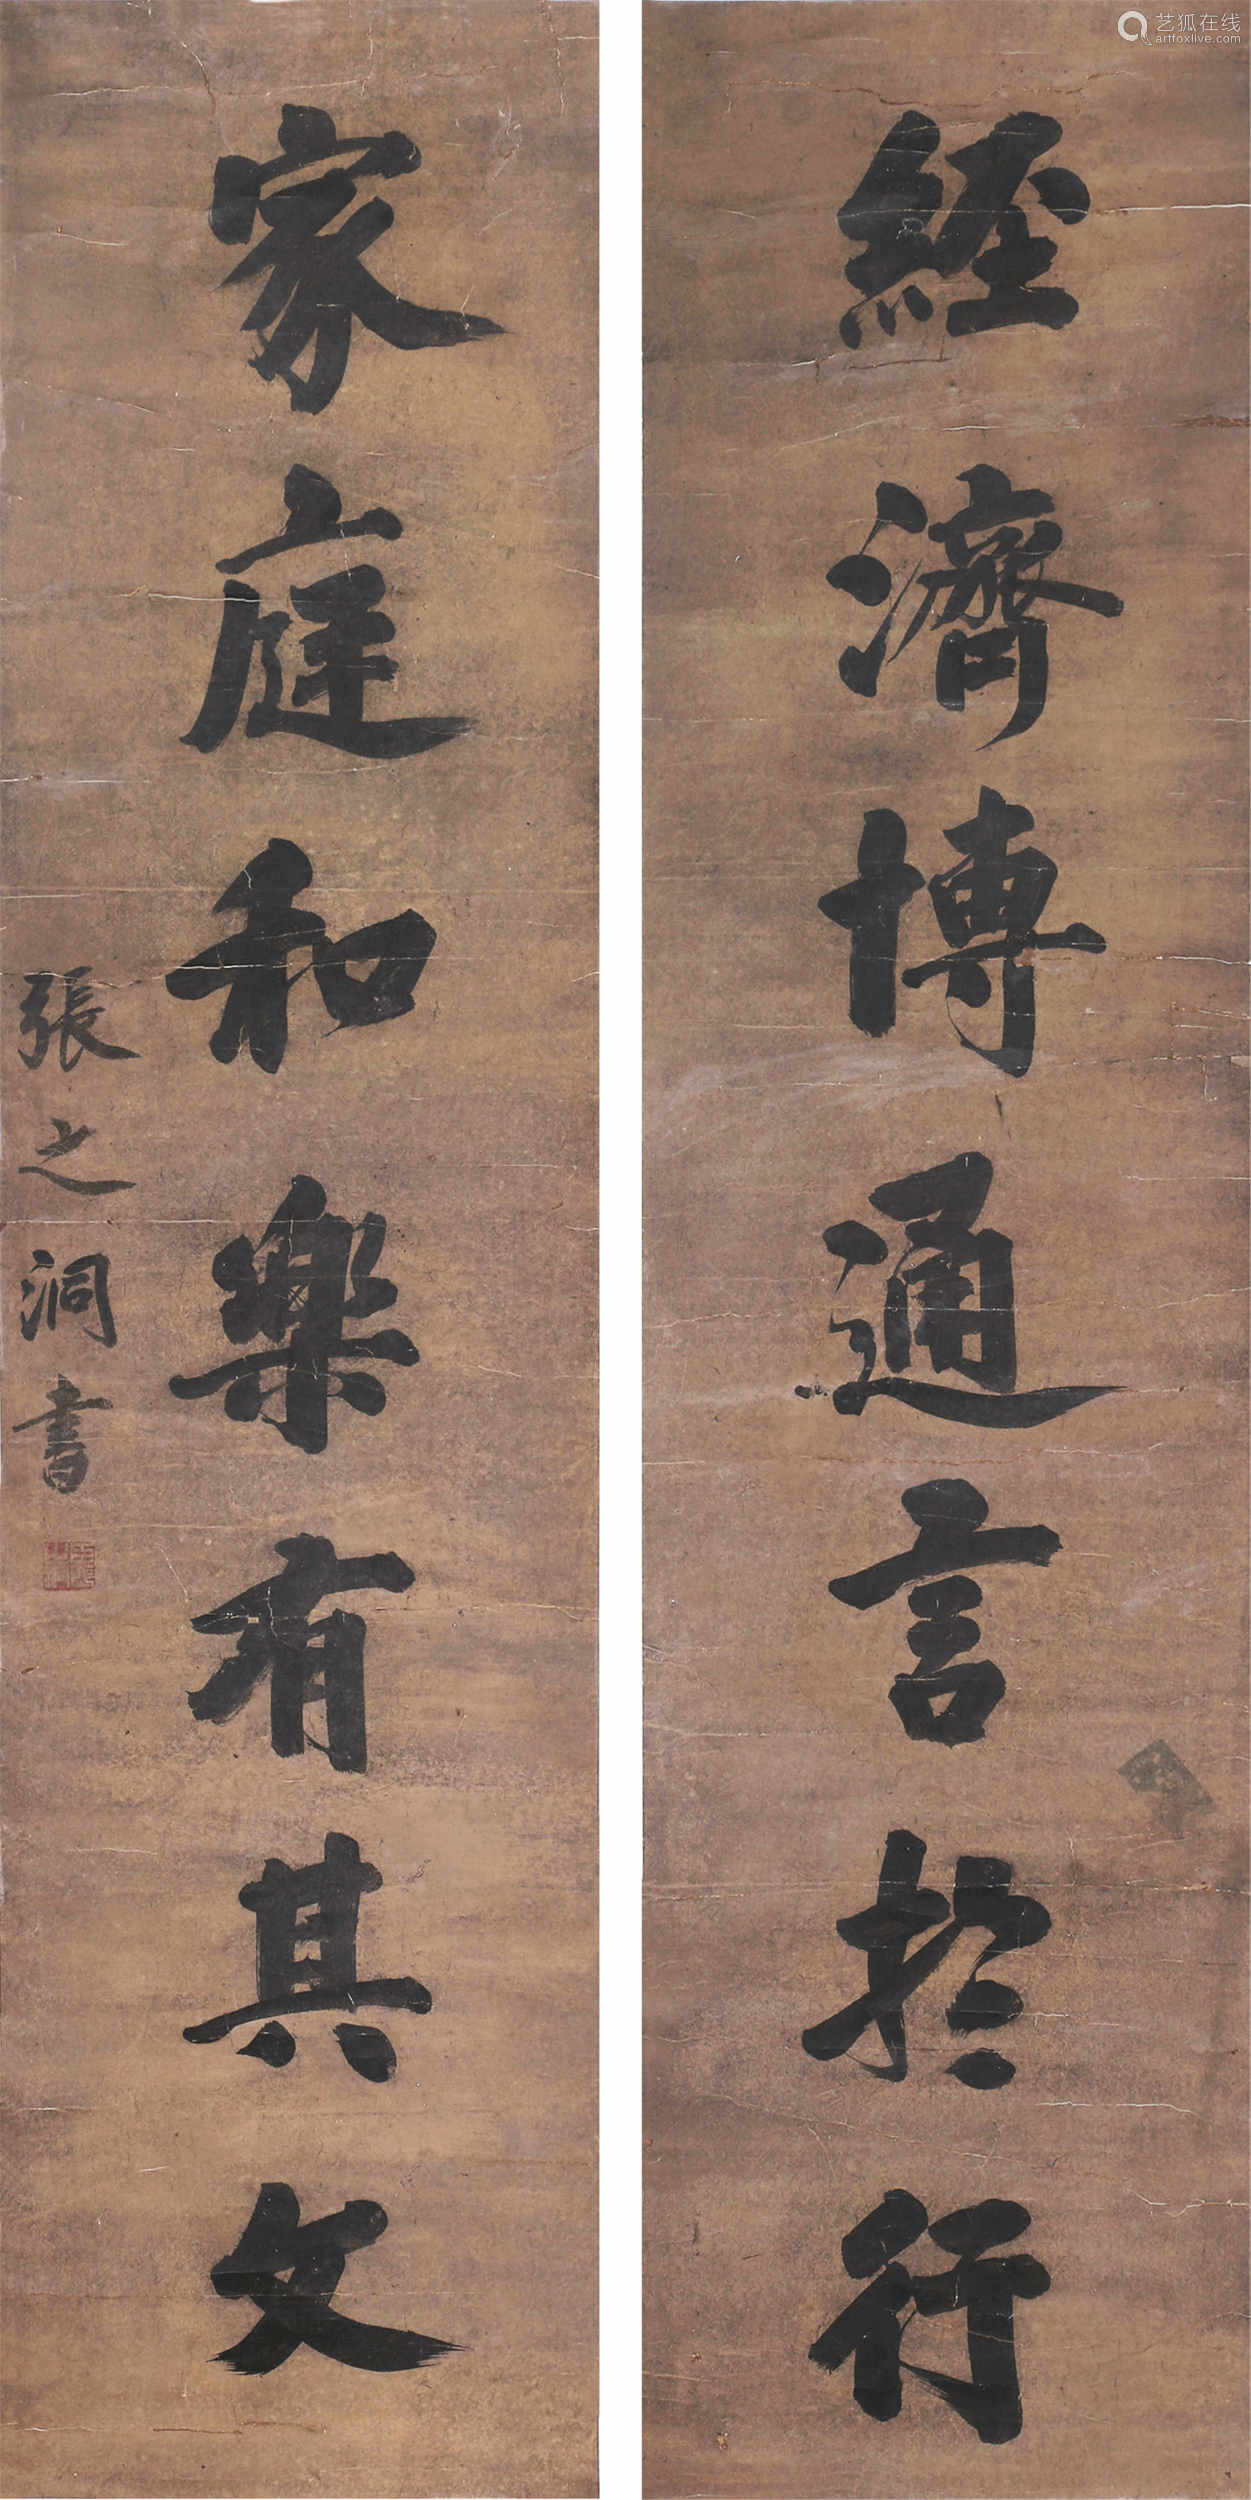 經濟博通言於行
家庭和樂有其文
張之洞書
艺狐在线
artfoxlive.com